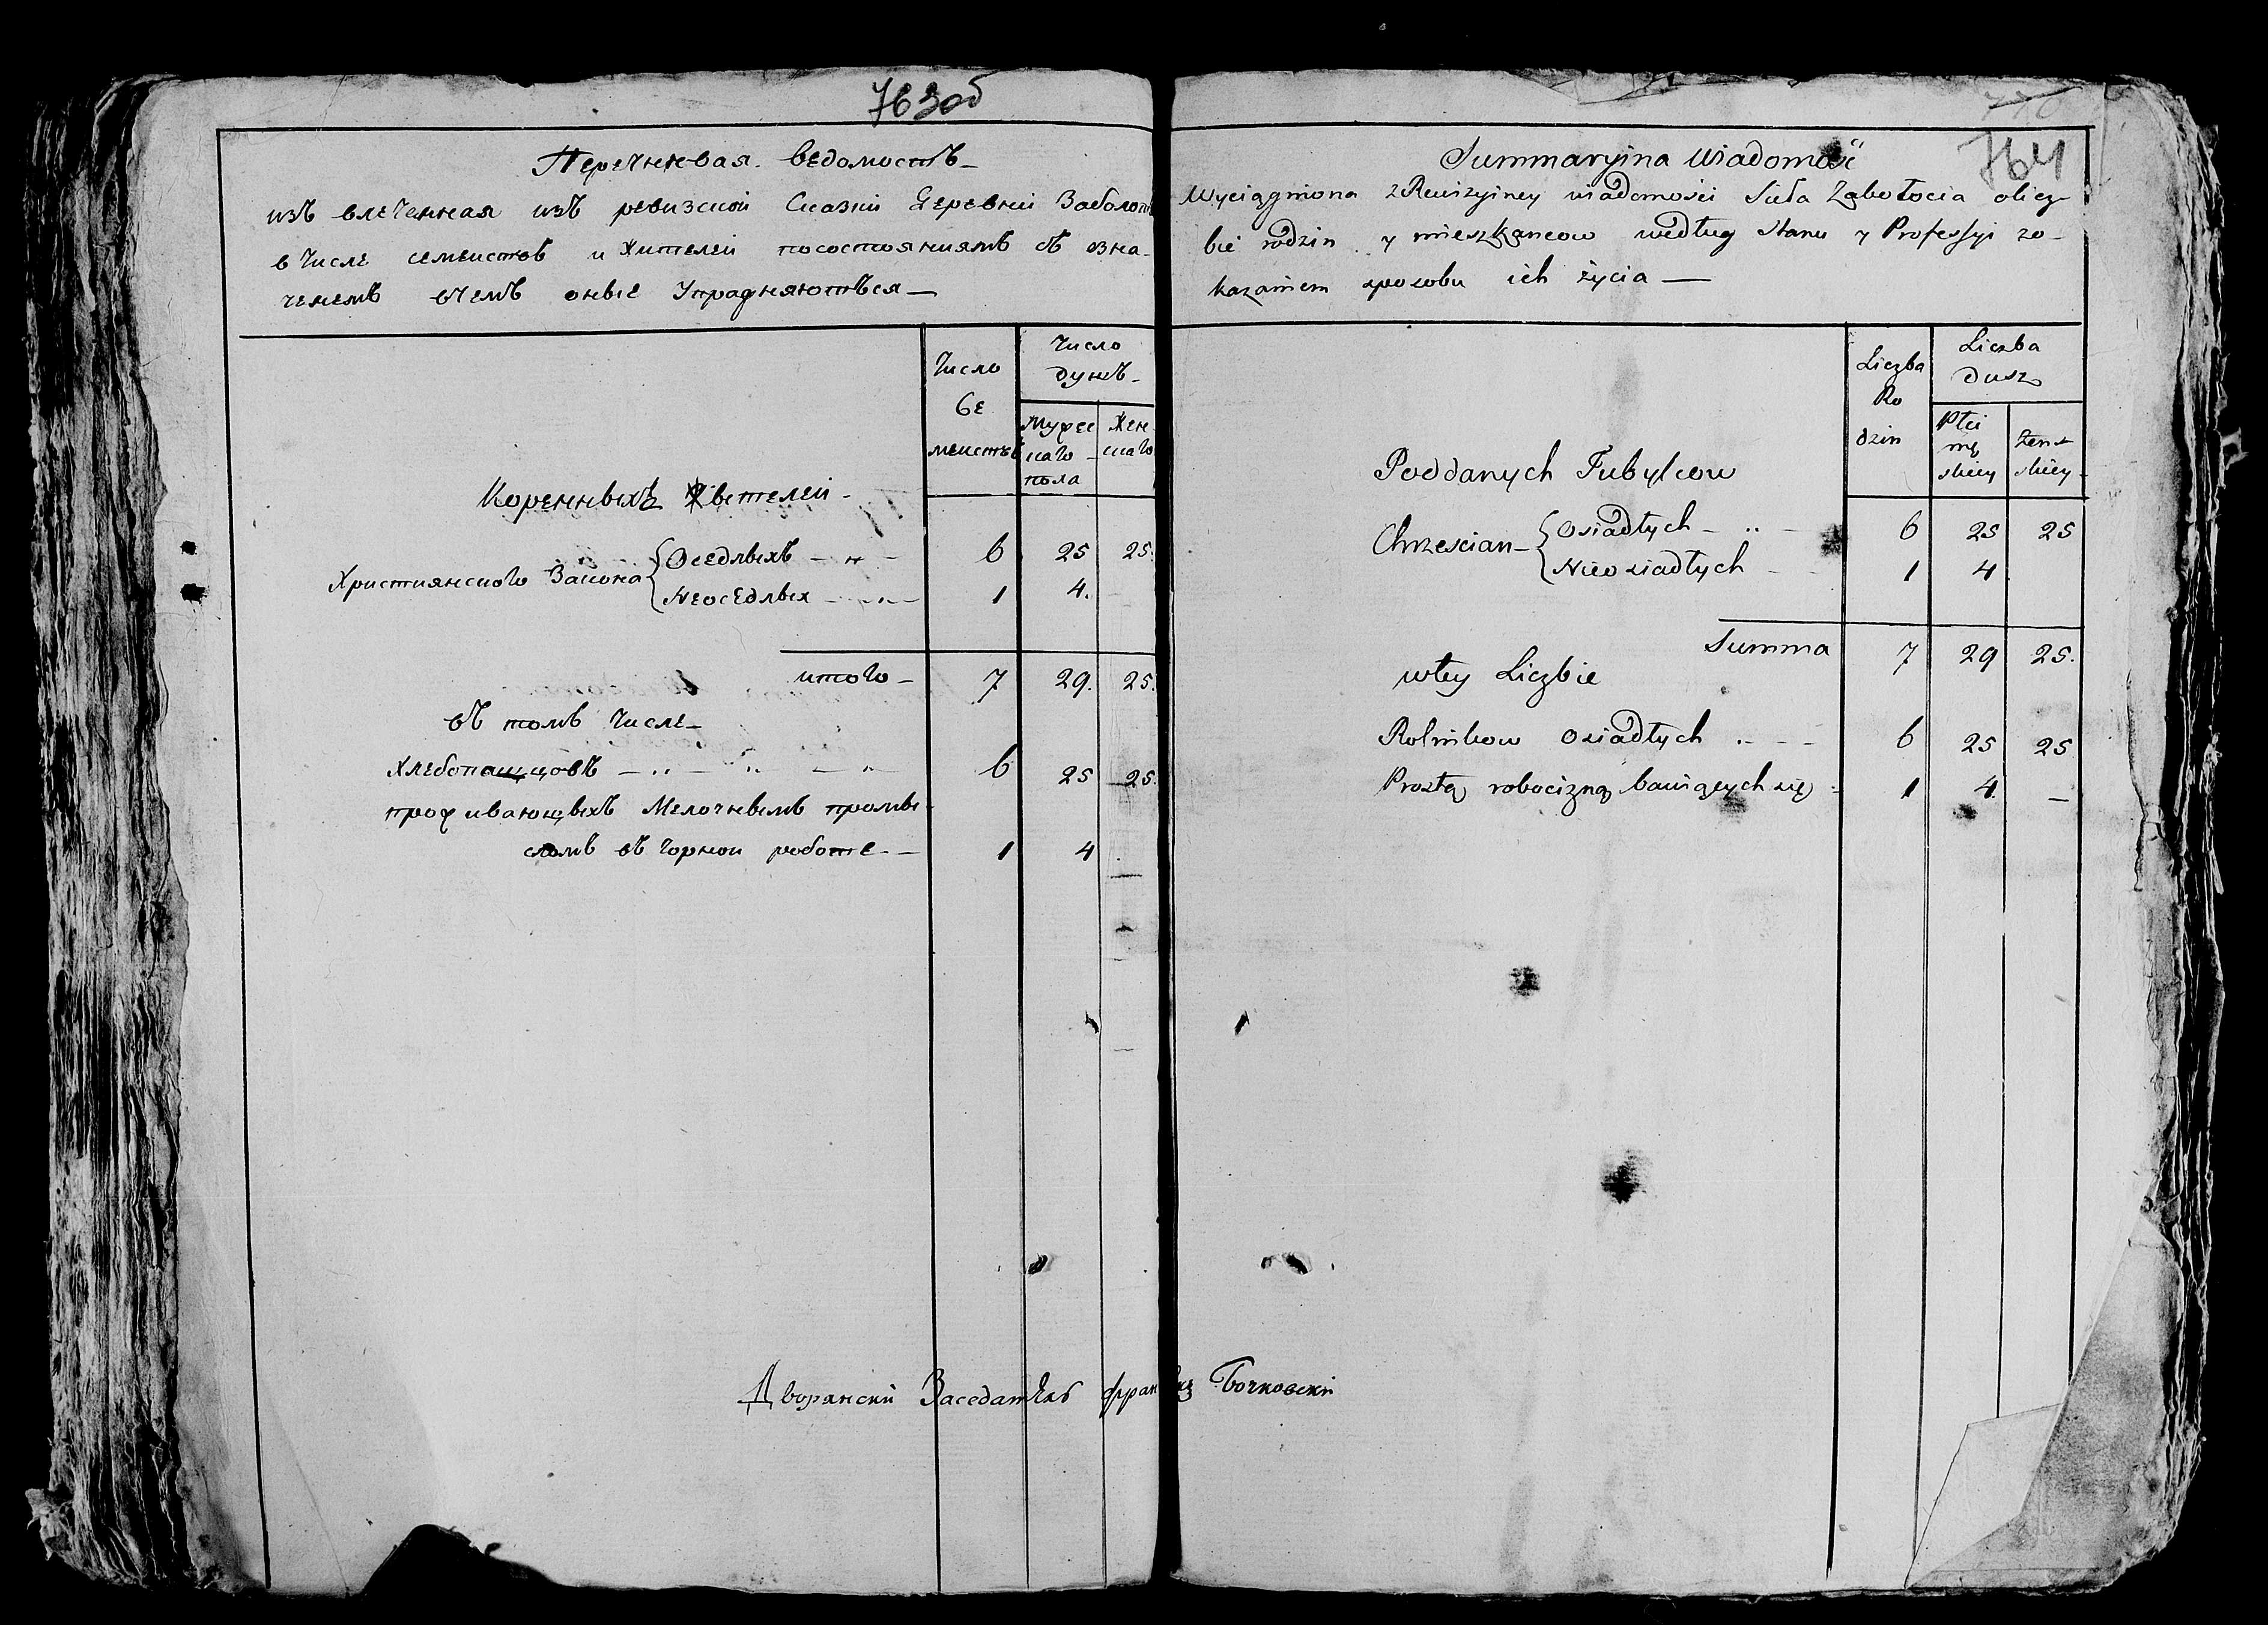 763об
Перечневая ведомостъ
изъ влеченная изъ ревизской Сказки Деревни Заболоти
в Числе семеиствъ и Жителеи посостояниямъ съ озна-
ченемъ вчемъ оные Упражняютъся
Число Се меиствъ
Число душъ
Мужес каго пола
Жен скаго
Коренныхъ Жителеи
Християнского Закона
Оседлыхъ 6 25 25
Неоседлых 1 4.
итого 7 29. 25.
въ томъ Числе
Хлебопащцовъ 6 25 25.
проживающыхъ Мелочнымъ промы-
сломъ въ Чорнои роботе 1 4 —
Дворянски Заседатель Бочковски
764
Summaryjna Wiadomość
Wyciągniona z Rewizyiney wiadomości Sieła Zabołocia o licz-
bie rodzin y mieszkancow według Stanu y Professyi zo-
kazaniem sposobu ich życia —
Liczba Ro dzin
Liczba dusz
Płci mę skiey
żen- skiey
Poddanych Tubylcow
Chrzescian
Osiadłych 6 25 25
Nieosiadłych 1 4
Summa 7 29 25.
wtey Liczbie
Rolnikow Osiadłych 6 25 25
Prostą robocizną bawiących się 1 4 —